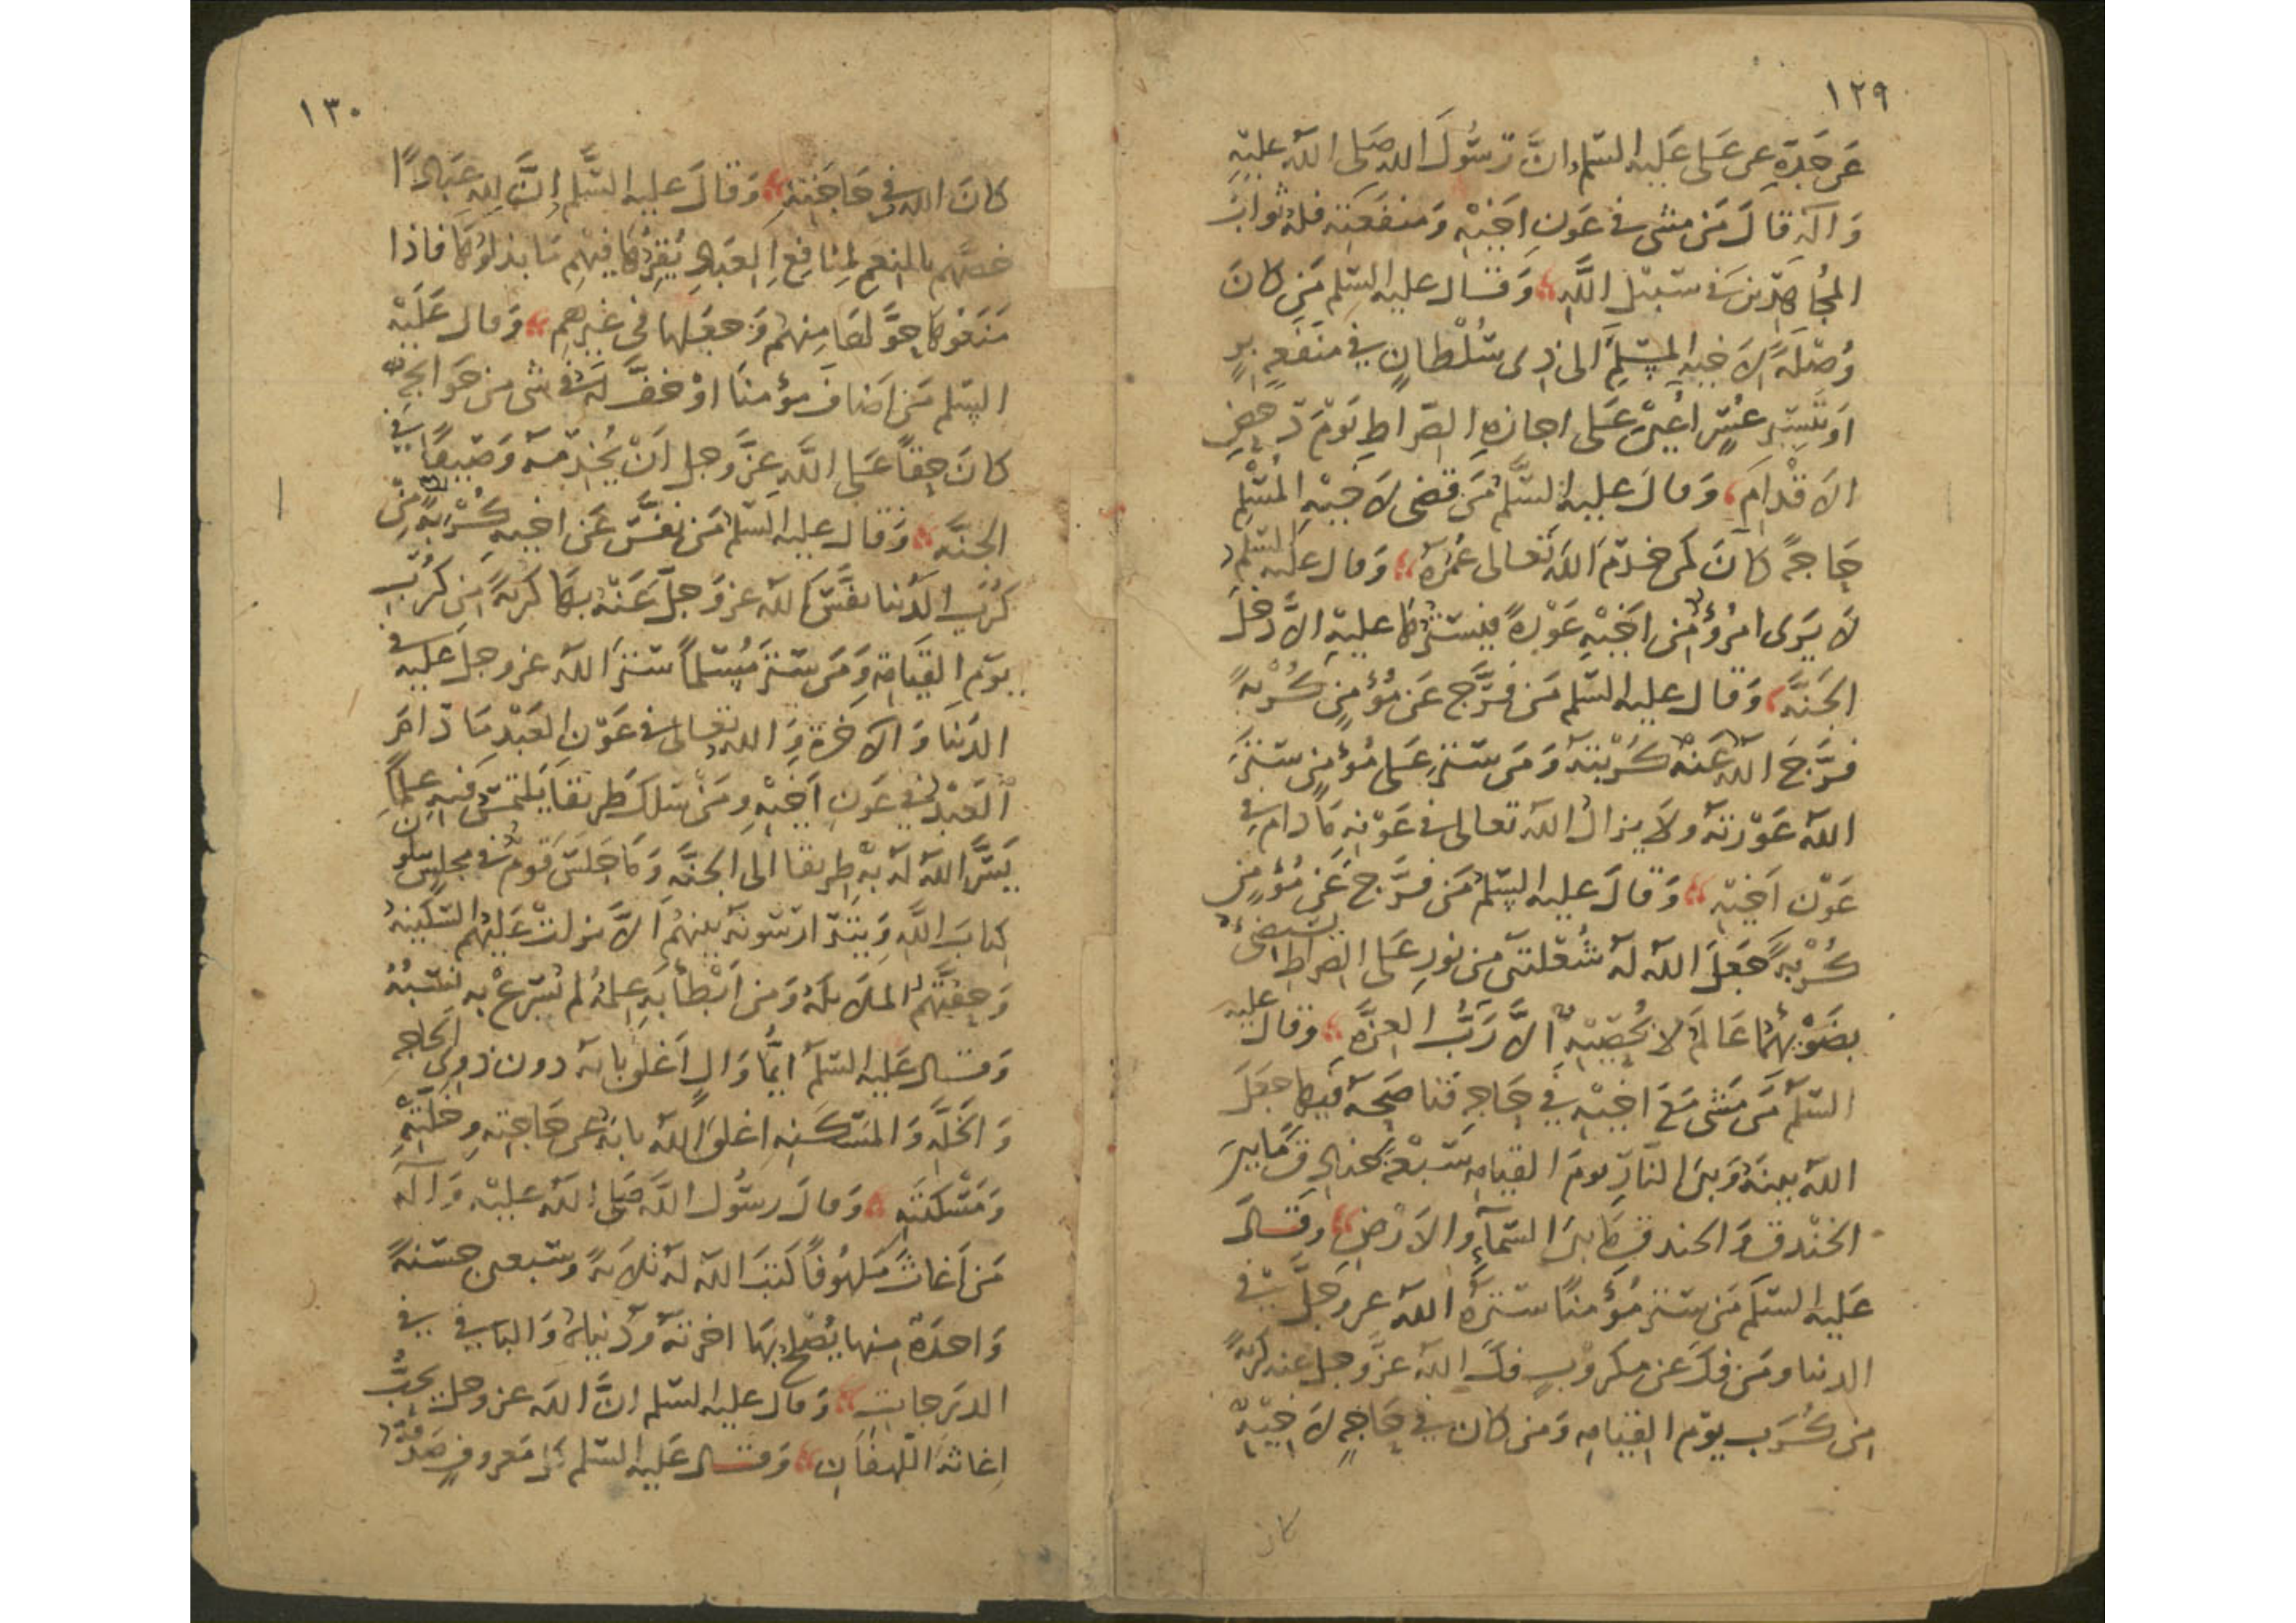 ١٢٩
عن جده عن علي عليه السلم ان رسول الله صلى الله عليه
وآله قال من مشى في عون اخيه ومنفعته فله ثواب
المجاهدين في سبيل الله وقال عليه السلم من كان
وصلة لاخيه المسلم الى ذي سلطان في منفعه بر
او تيسير عسر اعين على اجازة الصراط يوم دحض
الاقدام وقال عليه السلم من قضى لاخيه المسلم
حاجة كان كمن خدم الله تعالى عمره وقال عليه السلم
لا يرى امرؤ من اخيه عورة فيسترها عليه الا دخل
الجنة وقال عليه السلم من فرج عن مؤمن كربة
فرج الله عنه كربته ومن ستر على مؤمن ستر
الله عورته ولا يزال الله تعالى في عونه ما دام في
عون اخيه وقال عليه السلم من فرج عن مؤمن
كربة جعل الله له شعلتين من نور على الصراط يستضئ
بضوئهما عالم لا يحصيه الا رب العزة وقال عليه
السلم من مشى مع اخيه في حاجه فناصحه فيها جعل
الله بينه وبين النار يوم القيامه سبعة خنادق ما بين
الخندق والخندق ما بين السمآء والارض وقال
عليه السلم من ستر مؤمنا ستره الله عز وجل في
الدنيا ومن فك عن مكروب فك الله عز وجل عنه كربة
من كرب يوم القيامه ومن كان في حاجه لاخيه
كان
١٣٠
كان الله في حاجته وقال عليه السلم ان لله عبادا
خصهم بالنعم لمنافع العباد يقرها فيهم ما بذلوها فاذا
منعوها حولها منهم وجعلها في غيرهم وقال عليه
السلم من اضاف مؤمنا او خف له في شى من حوائجه
كان حقا على الله عز وجل ان يخدمه وصيفا في
الجنه وقال عليه السلم من نفس عن اخيه كربة من
كرب الدنيا نفس الله عز وجل عنه بها كربة من كرب
يوم القيامة ومن ستر مسلما ستر الله عز وجل عليه في
الدنيا والاخرة والله تعالى في عون العبد ما دام
العبد في عون اخيه ومن سلك طريقا يلتمس فيه علما
يسر الله له به طريقا الى الجنه وما جلس قوم في مجلس يتلون
كتاب الله ويتدارسونه بينهم الا نزلت عليهم السكينه
وحفتهم الملائكه ومن ابطأ به عمله لم يسرع به نسبه
وقال عليه السلم ايما وال اغلق بابه دون ذوي الحاجه
والخله والمسكنه اغلق الله بابه عن حاجته وخلته
ومسكنته وقال رسول الله صلى الله عليه وآله
من اغاث ملهوفا كتب الله له ثلاثة وسبعين حسنة
واحدة منها يصلح بها اخرته ودنياه والباقي في
الدرجات وقال عليه السلم ان الله عز وجل يحب
اغاثة اللهفان وقال عليه السلم كل معروف صدقة